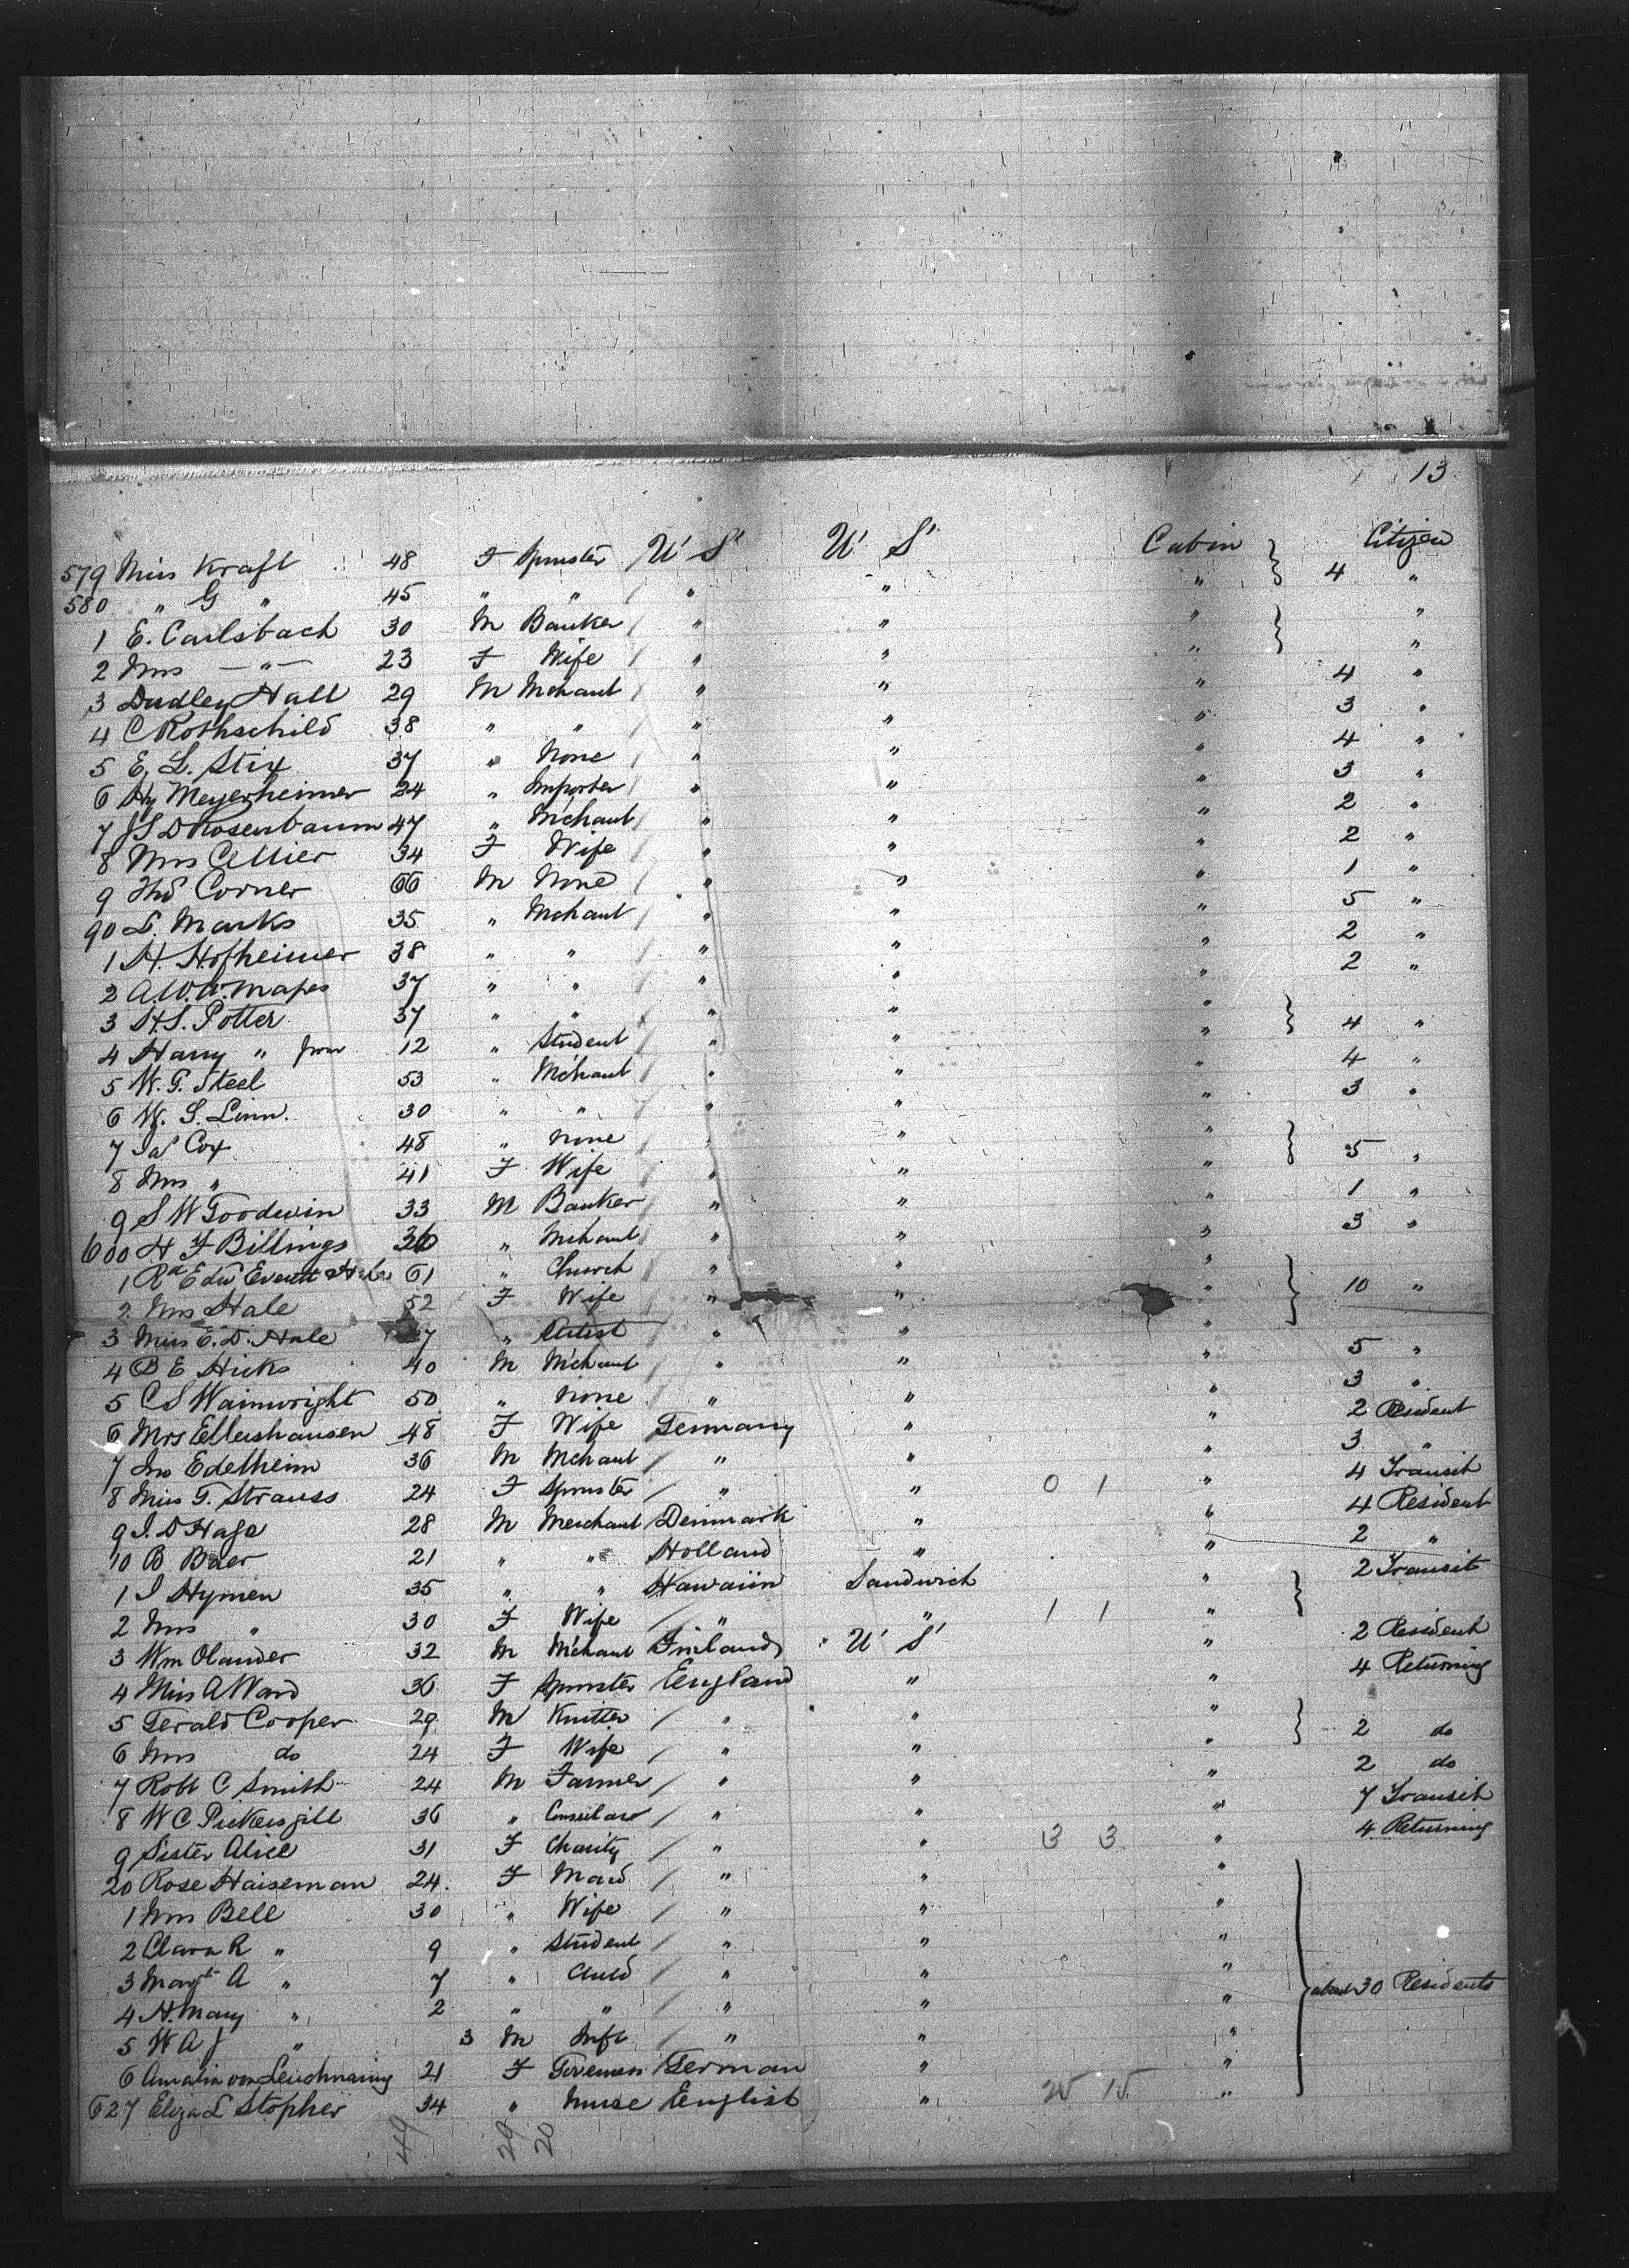 13
579 Miss Kraft 48 F Spinster / U' S' U' S' Cabin } 4 Citizen
580 " G " 45 " " / " " " "
1 E. Carlsbach 30 M Banker / " " " } "
2 Mrs —"— 23 F Wife / " " " "
3 Dudley Hall 29 M Mchant / " " " 4 "
4 C Rothschild 38 " " / " " " 3 "
5 E. L. Stix 37 " None / " " " 4 "
6 Hy Meyerheimer 24 " Importer / " " " 3 "
7 J S D Rosenbaum 47 " Mchant / " " " 2 "
8 Mrs Cellier 34 F Wife / " " " 2 "
9 Thos Corner 66 M None / " " " 1 "
90 L. Marks 35 " Mchant / " " " 5 "
1 H. Hofheimer 38 " " / " " " 2 "
2 A.W.W. Mapes 37 " " " " " 2 "
3 H.S. Potter 37 " " / " " " } 4 "
4 Harry " Junr 12 " Student / " " "
5 W. G. Steel 53 " Mchant / " " " 4 "
6 W. S. Linn. 30 " " / " " " 3 "
7 Jas Cox 48 " None / " " " } 5 "
8 Mrs " 41 F Wife / " " "
9 S W Goodwin 33 M Banker / " " " 1 "
600 H F Billings 36 " Mchant / " " " 3 "
1 Rd Edw Everett Hale 61 " Church / " " " } 10 "
2 Mrs Hale 52 F Wife / " " "
3 Miss E. D. Hale 7 " Artist / " " "
4 B E Hicks 40 M Mchant / " " " 5 "
5 C S Wainwright 50 " None / " " " 3 "
6 Mrs Ellershausen 48 F Wife Germany " " 2 Resident
7 Jno Edelheim 36 M Mchant / " " " 3 "
8 Miss G. Strauss 24 F Spinster / " " 0 1 " 4 Transit
9 J. D Hage 28 M Merchant Denmark " " 4 Resident
10 B Baer 21 " " Holland " " 2 "
1 J Hymen 35 " " Hawaiin Sandwich " } 2 Transit
2 Mrs " 30 F Wife / " " 1 1 "
3 Wm Olander 32 M Mchant Finland U' S' " 2 Resident
4 Miss A Ward 36 F Spinster England " " 4 Returning
5 Gerald Cooper 29 M Knitter / " " " } 2 do
6 Mrs do 24 F Wife / " " "
7 Robt C Smith 24 M Farmer / " " " 2 do
8 W C Pickersgill 36 " / " " " 7 Transit
9 Sister Alice 31 F Charity / " " 3 3 " 4 Returning
20 Rose Haiseman 24 F Maid / " " "
1 Mrs Bell 30 " Wife / " " "
2 Clara R " 9 " Student / " " "
3 Margt A " 7 " Child / " " " } about 30 Residents
4 H. Mary " 2 " " / " " "
5 W A J " 3 M Inft / " " "
6 Amalia von 21 F German " "
627 Eliza L Stopher 34 " Nurse English " 25 15 "
49 29 20